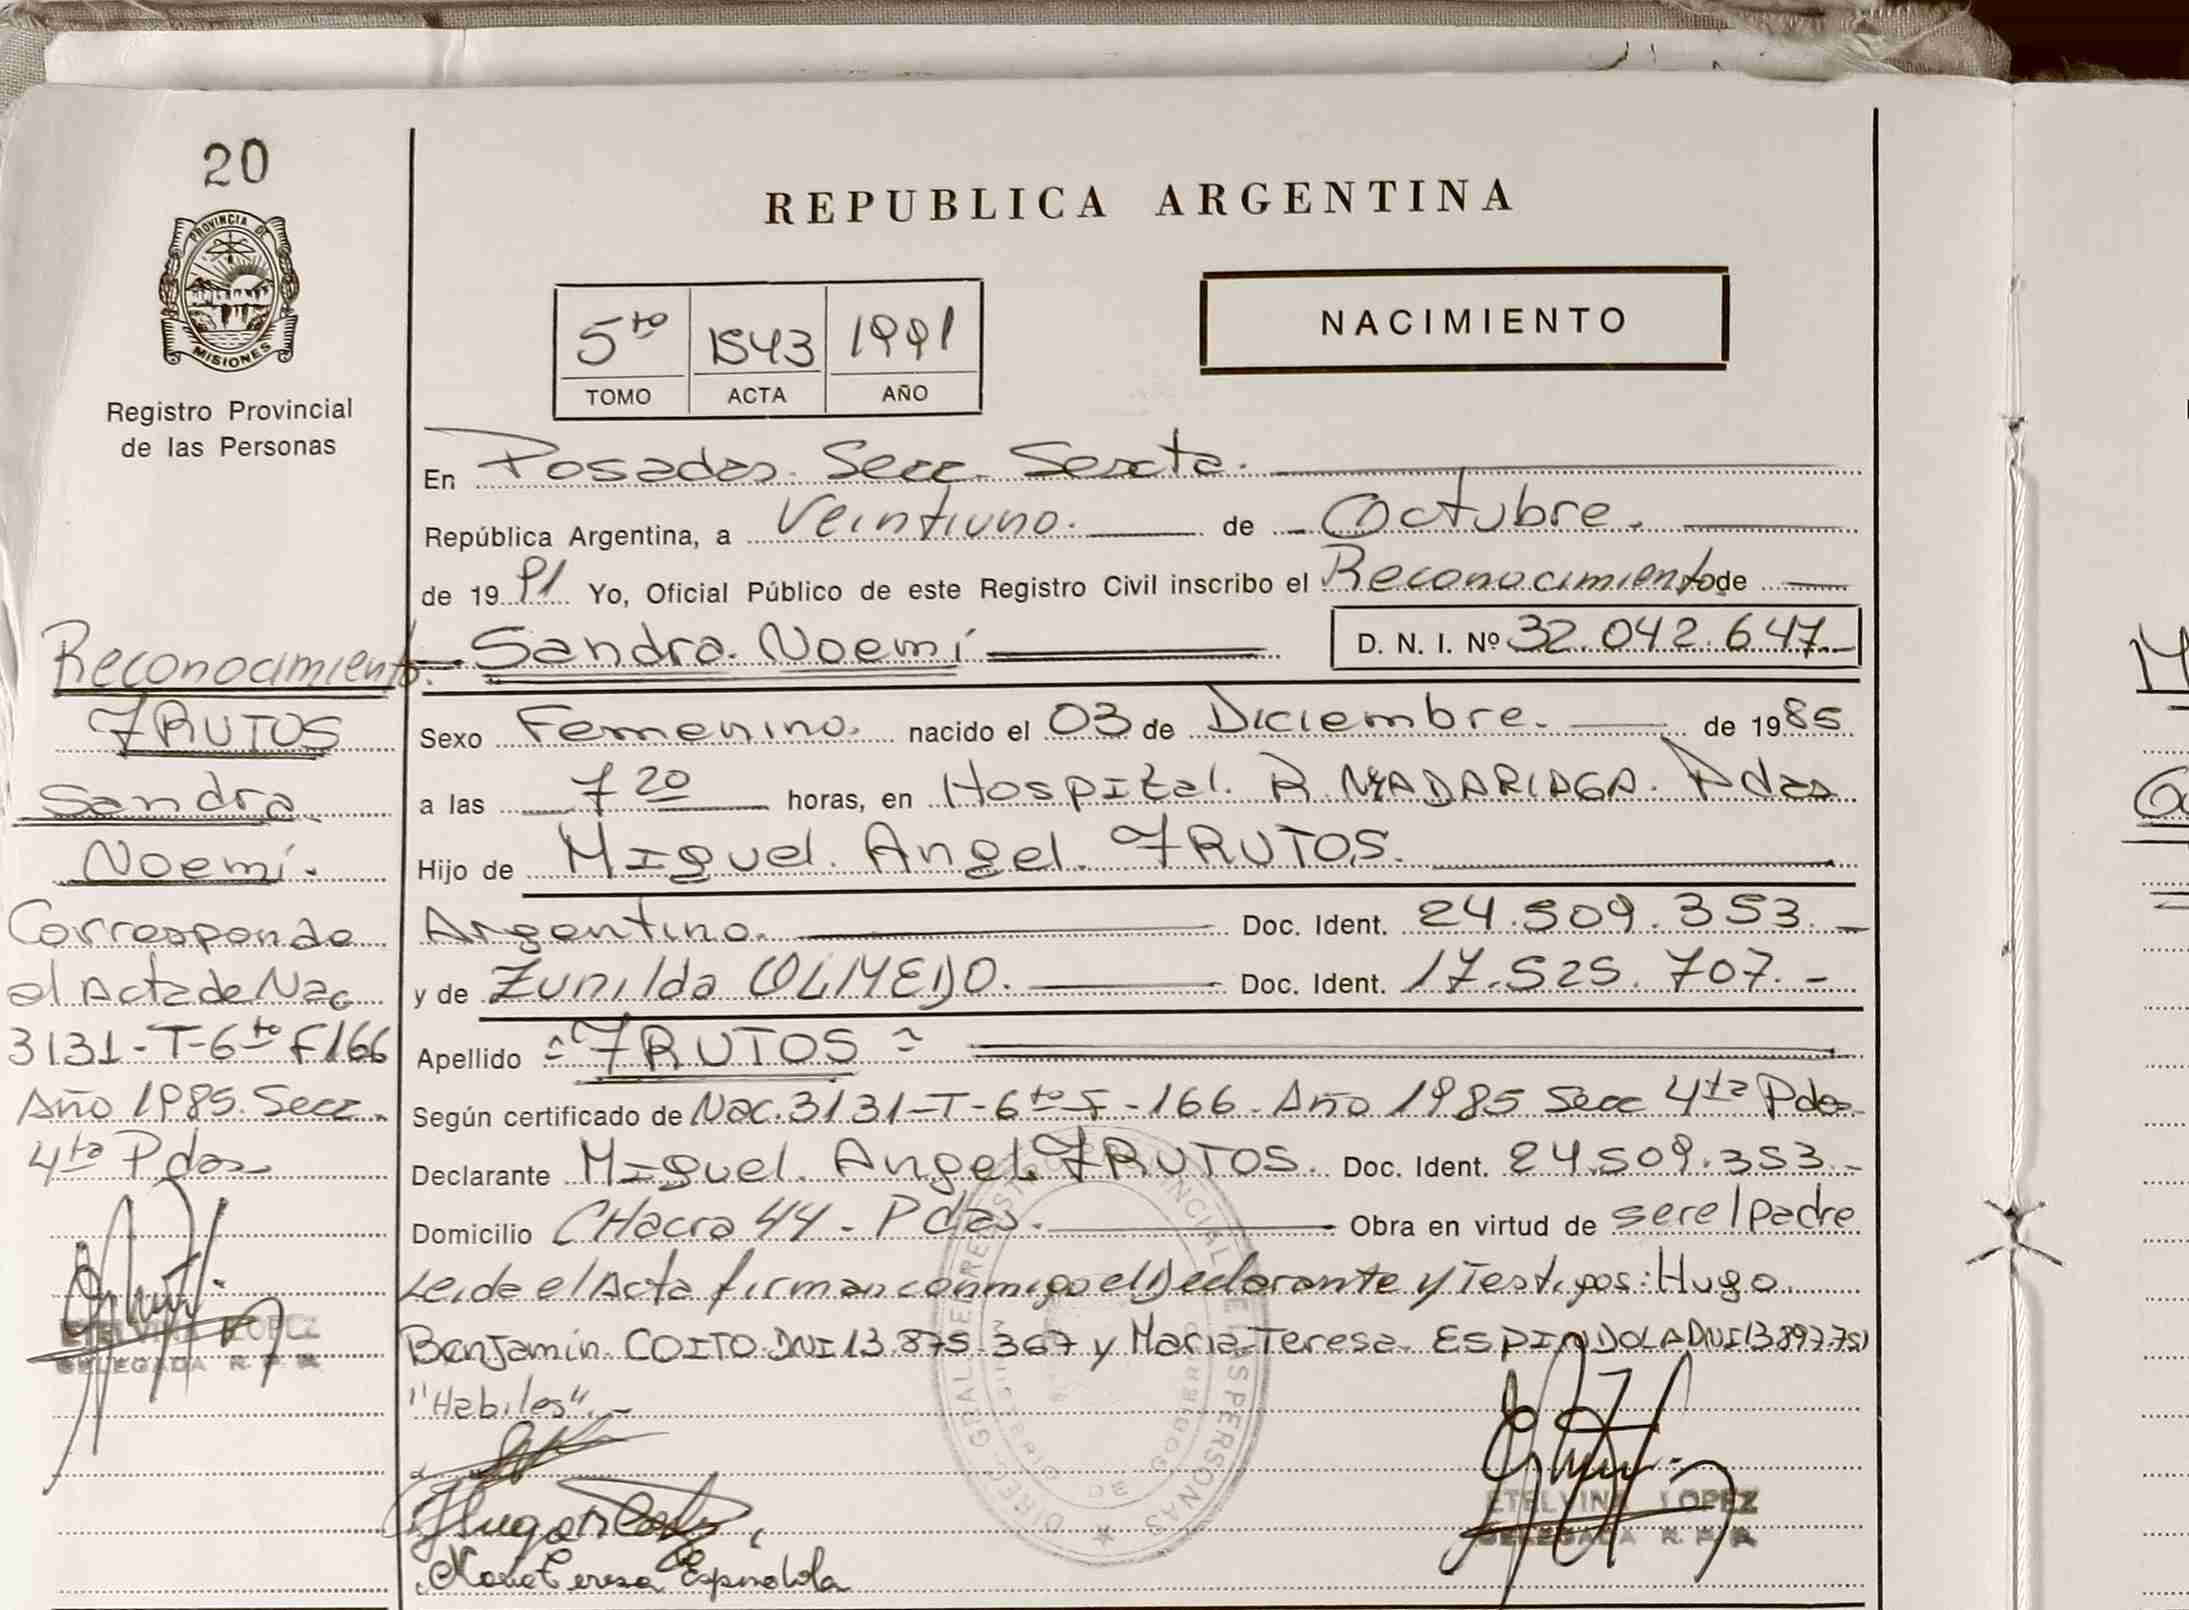 20
PROVINCIA DE
MISIONES
Registro Provincial
de las Personas
REPUBLICA ARGENTINA
5to 1543 1991
TOMO ACTA AÑO
NACIMIENTO
En Posadas. Secc. Sexta.
República Argentina, a Veintiuno. de Octubre.
de 1991 Yo, Oficial Público de este Registro Civil inscribo el Reconocimiento de
Sandra. Noemí D. N. I. Nº 32.042.647.-
Sexo Femenino. nacido el 03 de Diciembre. de 1985
a las 7 20 horas, en Hospital. R. MADARIAGA. Pdas
Hijo de Miguel. Angel. FRUTOS.
Argentino. Doc. Ident. 24.509.353.-
y de Zunilda OLMEDO. Doc. Ident. 17.525.707.-
Apellido = FRUTOS =
Según certificado de Nac. 3131-T-6to F-166. Año 1985 Secc 4ta Pdas.
Declarante Miguel. Angel. FRUTOS. Doc. Ident. 24.509.353.-
Domicilio CHacra 44 - Pdas. Obra en virtud de ser el padre
Leida el Acta firman conmigo el Declarante y Testigos: Hugo
Benjamín. COITO. DNI 13.875.367 y Maria Teresa. ESPINDOLA DNI 13.897.751
"Habiles".-
Maria Teresa Espindola
ETELVINA LOPEZ
DELEGADA R. P. P.
DIREC. GRAL DE REGISTRO PROVINCIAL DE LAS PERSONAS
Reconocimiento.
FRUTOS
Sandra
Noemí.
Corresponde
al Acta de Nac
3131-T-6to F166
Año 1985. Secc.
4ta Pdas
ETELVINA LOPEZ
DELEGADA R. P. P.